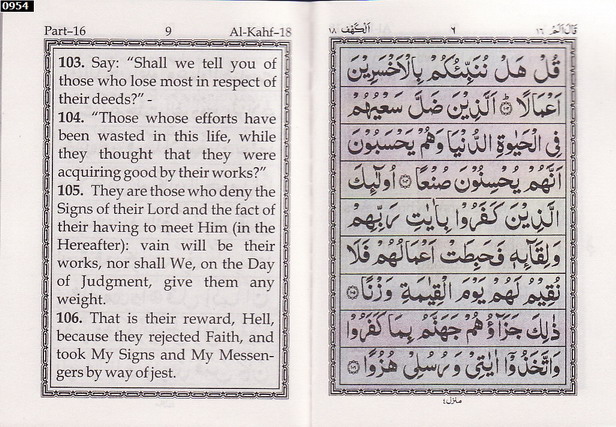 0954
Part–16 9 Al-Kahf–18
103. Say: “Shall we tell you of
those who lose most in respect of
their deeds?” -
104. “Those whose efforts have
been wasted in this life, while
they thought that they were
acquiring good by their works?”
105. They are those who deny the
Signs of their Lord and the fact of
their having to meet Him (in the
Hereafter): vain will be their
works, nor shall We, on the Day
of Judgment, give them any
weight.
106. That is their reward, Hell,
because they rejected Faith, and
took My Signs and My Messen-
gers by way of jest.
قال الم ١٦ ٦ الكهف ١٨
قُلْ هَلْ نُنَبِّئُكُمْ بِالْاَخْسَرِيْنَ
اَعْمَالًا ۟ اَلَّذِيْنَ ضَلَّ سَعْيُهُمْ
فِى الْحَيٰوةِ الدُّنْيَا وَهُمْ يَحْسَبُوْنَ
اَنَّهُمْ يُحْسِنُوْنَ صُنْعًا ۟ اُولٰٓئِكَ
الَّذِيْنَ كَفَرُوْا بِاٰيٰتِ رَبِّهِمْ
وَلِقَآئِهٖ فَحَبِطَتْ اَعْمَالُهُمْ فَلَا
نُقِيْمُ لَهُمْ يَوْمَ الْقِيٰمَةِ وَزْنًا ۟
ذٰلِكَ جَزَآؤُهُمْ جَهَنَّمُ بِمَا كَفَرُوْا
وَاتَّخَذُوْۤا اٰيٰتِىْ وَرُسُلِىْ هُزُوًا ۟
منزل ٤